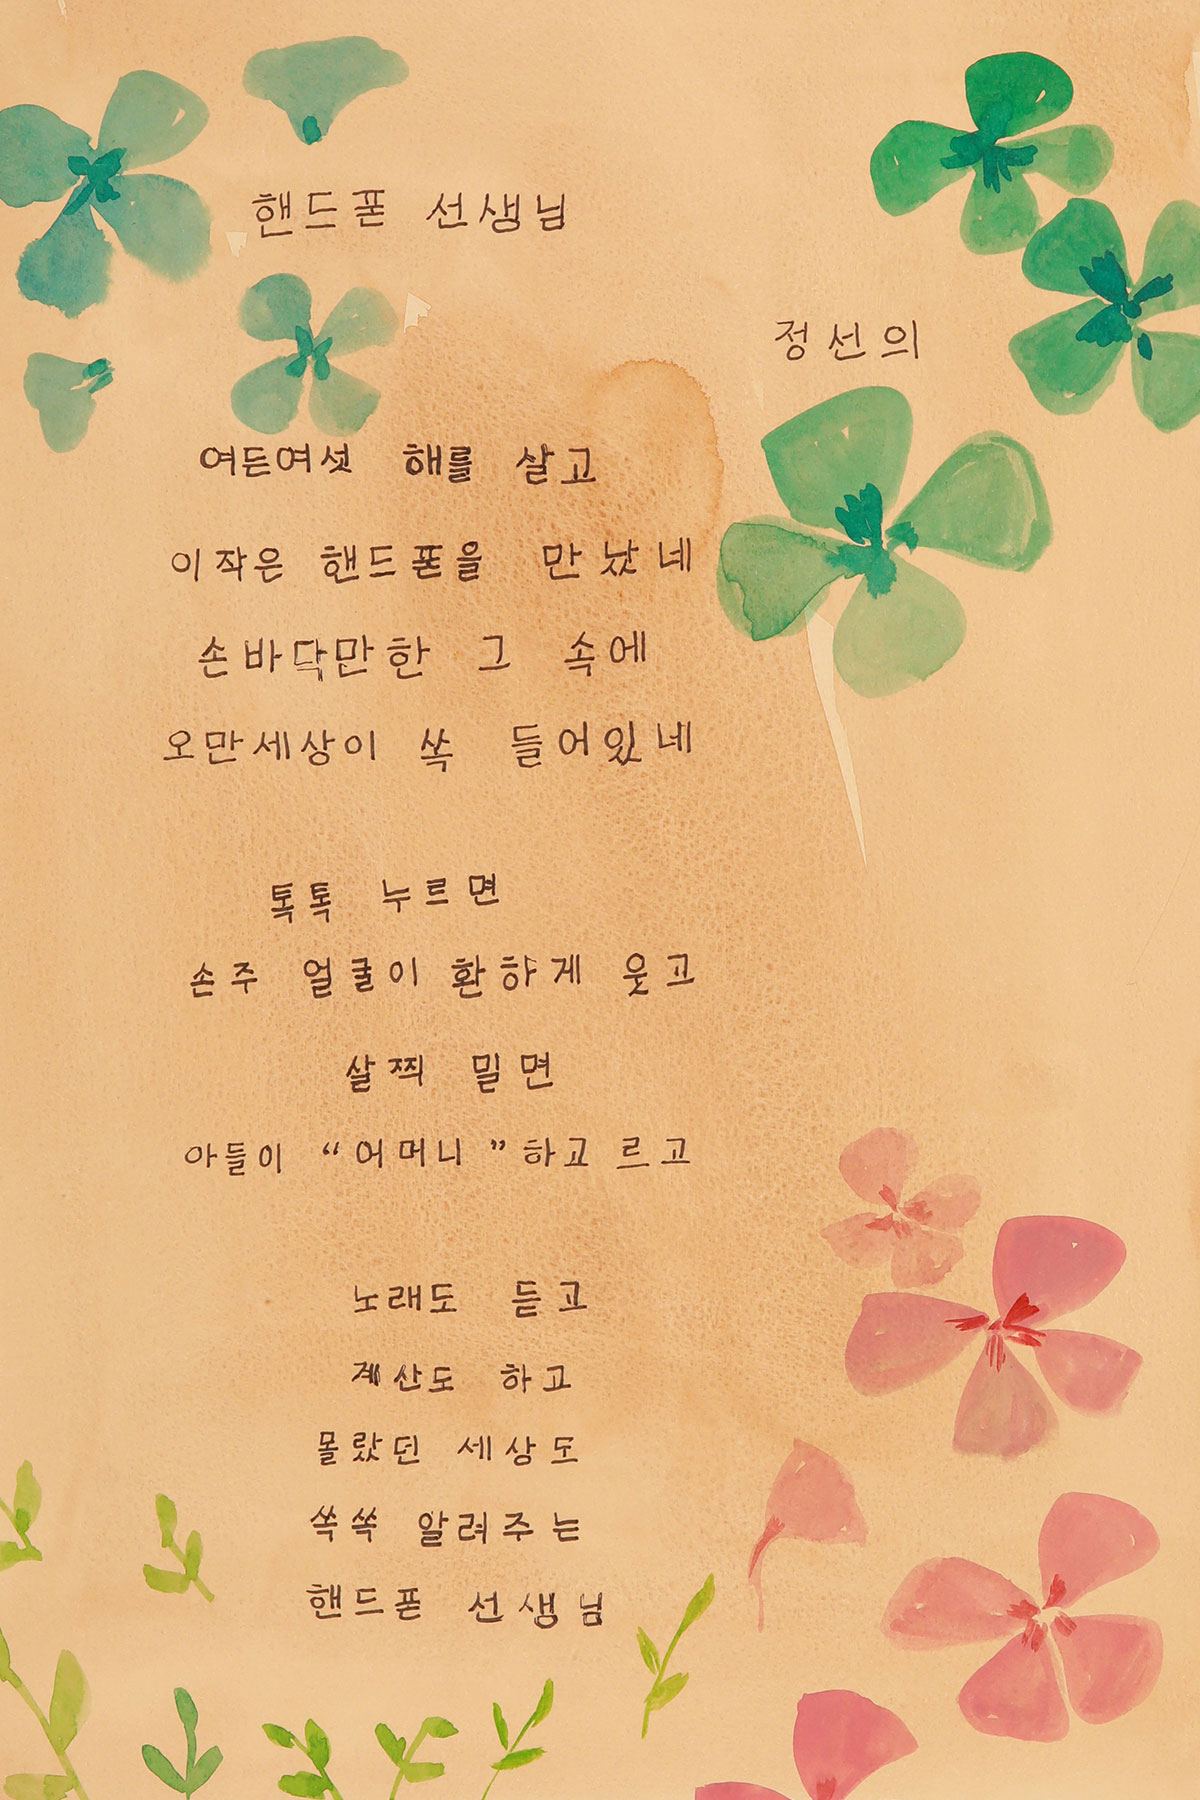 핸드폰 선생님
정선의
여든여섯 해를 살고
이작은 핸드폰을 만났네
손바닥만한 그 속에
오만세상이 쏙 들어있네
톡톡 누르면
손주 얼굴이 환하게 웃고
살찍 밀면
아들이 “어머니”하고 르고
노래도 듣고
계산도 하고
몰랐던 세상도
쏙쏙 알려주는
핸드폰 선생님